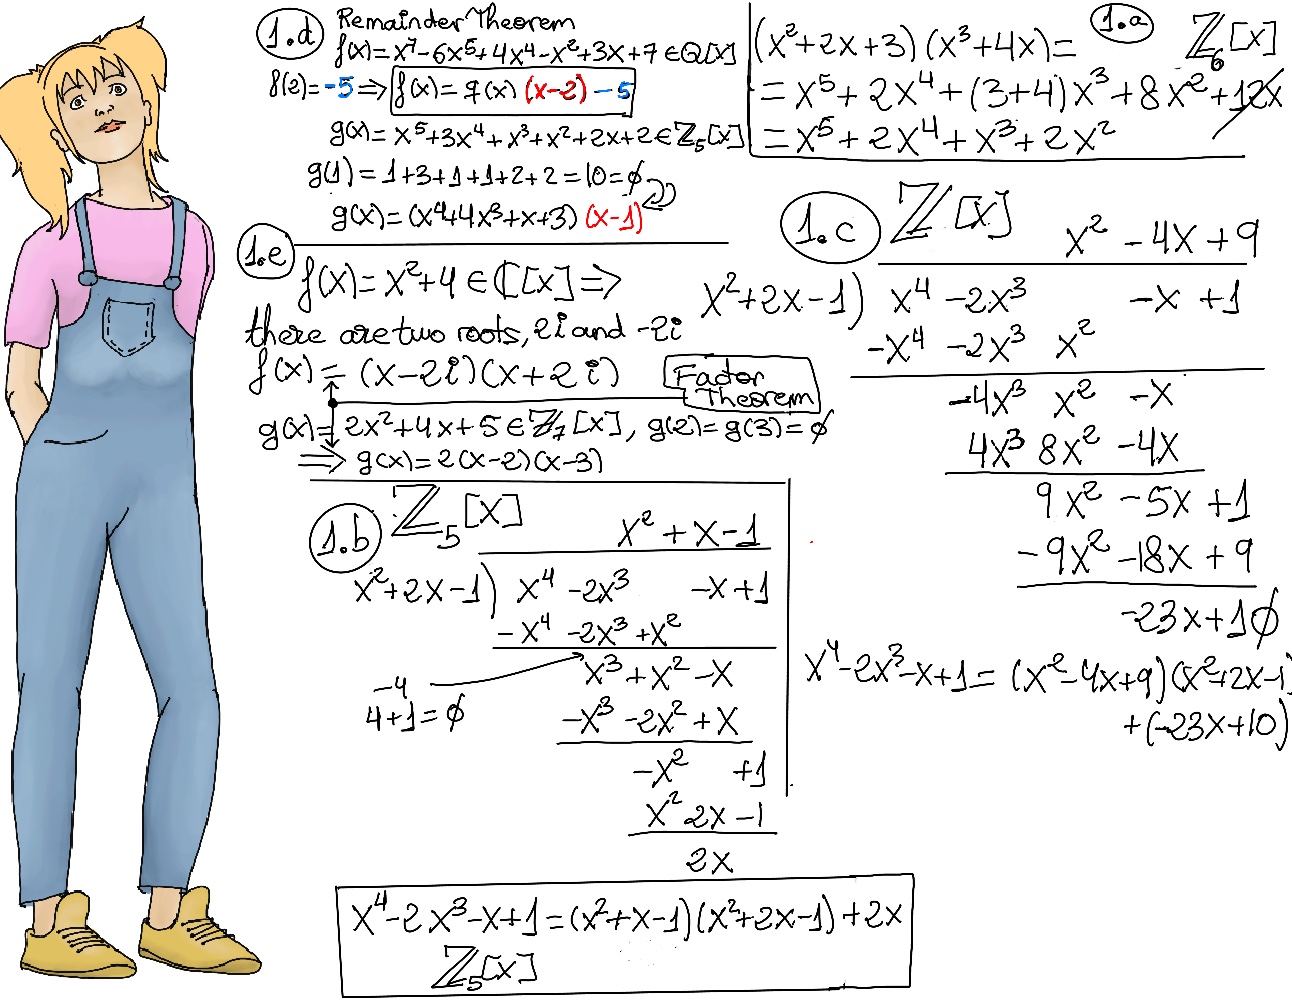 1.d
Remainder Theorem
f(x)=x⁷-6x⁵+4x⁴-x²+3x+7 ∈ Q[x]
f(2)=-5 ⇒ f(x)=q(x)(x-2)-5
g(x)=x⁵+3x⁴+x³+x²+2x+2 ∈ ℤ₅[x]
g(1)=1+3+1+1+2+2=10=0
g(x)=(x⁴+4x³+x+3)(x-1)
1.a
ℤ₆[x]
(x²+2x+3)(x³+4x)=
=x⁵+2x⁴+(3+4)x³+8x²+12x
=x⁵+2x⁴+x³+2x²
1.e
f(x)=x²+4 ∈ ℂ[x] ⇒
there are two roots, 2i and -2i
f(x)=(x-2i)(x+2i)
Factor
Theorem
g(x)=2x²+4x+5 ∈ ℤ₇[x], g(2)=g(3)=0
⇒ g(x)=2(x-2)(x-3)
1.c
ℤ[x]
x² -4x +9
x²+2x-1) x⁴ -2x³ -x +1
-x⁴ -2x³ x²
-4x³ x² -x
4x³ 8x² -4x
9x² -5x +1
-9x² -18x +9
-23x+10
x⁴-2x³-x+1=(x²-4x+9)(x²+2x-1)
+(-23x+10)
1.b
ℤ₅[x]
x² + x - 1
x²+2x-1) x⁴ -2x³ -x+1
-x⁴ -2x³ +x²
x³+x²-x
-4
4+1=0
-x³ -2x² +x
-x² +1
x² 2x -1
2x
x⁴-2x³-x+1=(x²+x-1)(x²+2x-1)+2x
ℤ₅[x]